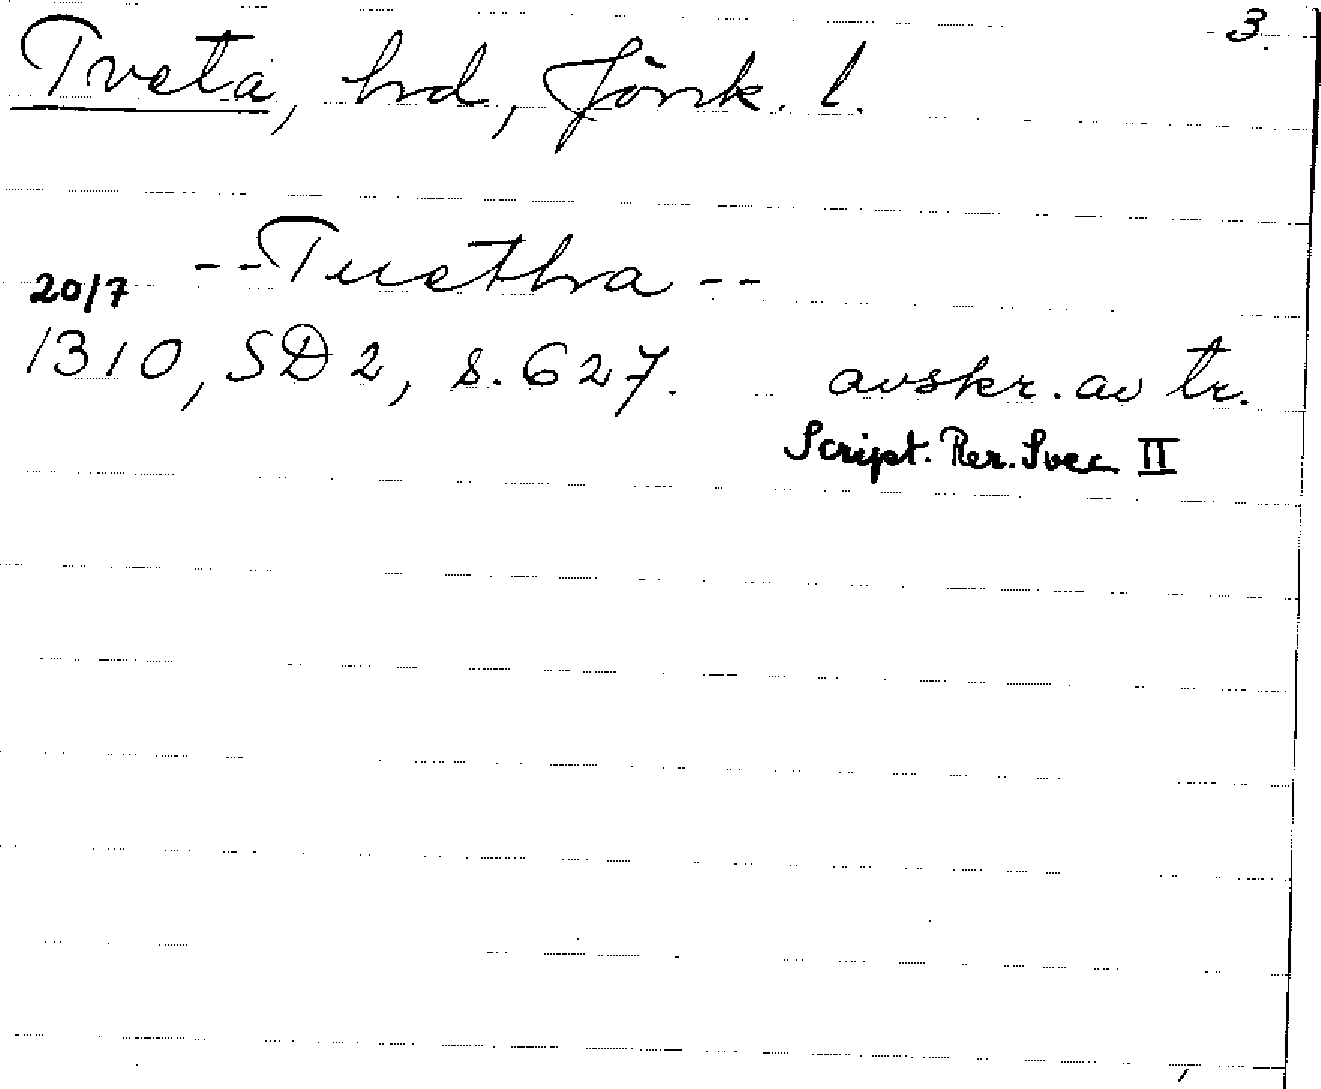 3.
Tveta, hd, Jönk. l.
--Tuetha--
20/7
1310, SD 2, s. 627. avskr. av tr.
Script. Rer. Svec II